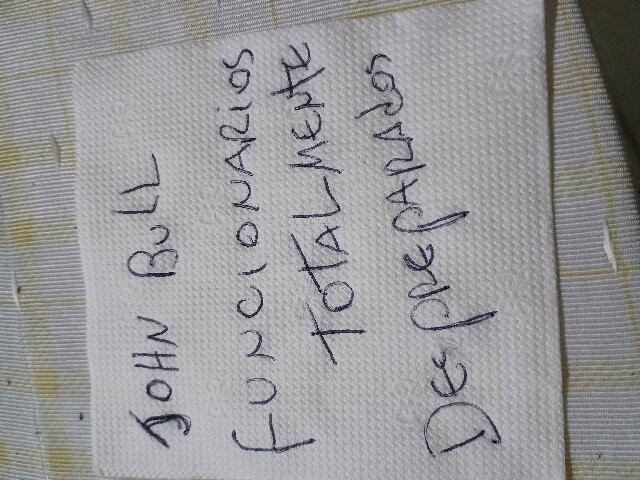 JOHN BULL
FUNCIONARIOS
TOTALMENTE
DESPREPARADOS